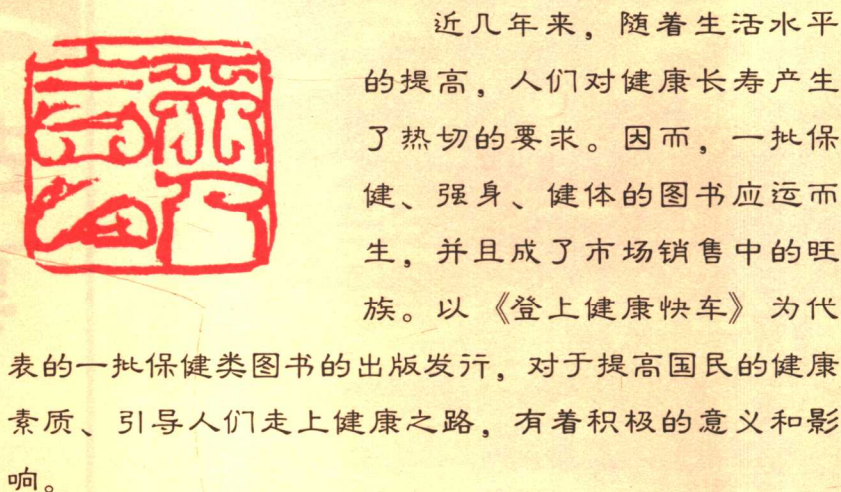 近几年来，随着生活水平
的提高，人们对健康长寿产生
了热切的要求。因而，一批保
健、强身、健体的图书应运而
生，并且成了市场销售中的旺
族。以《登上健康快车》为代
表的一批保健类图书的出版发行，对于提高国民的健康
素质、引导人们走上健康之路，有着积极的意义和影
响。